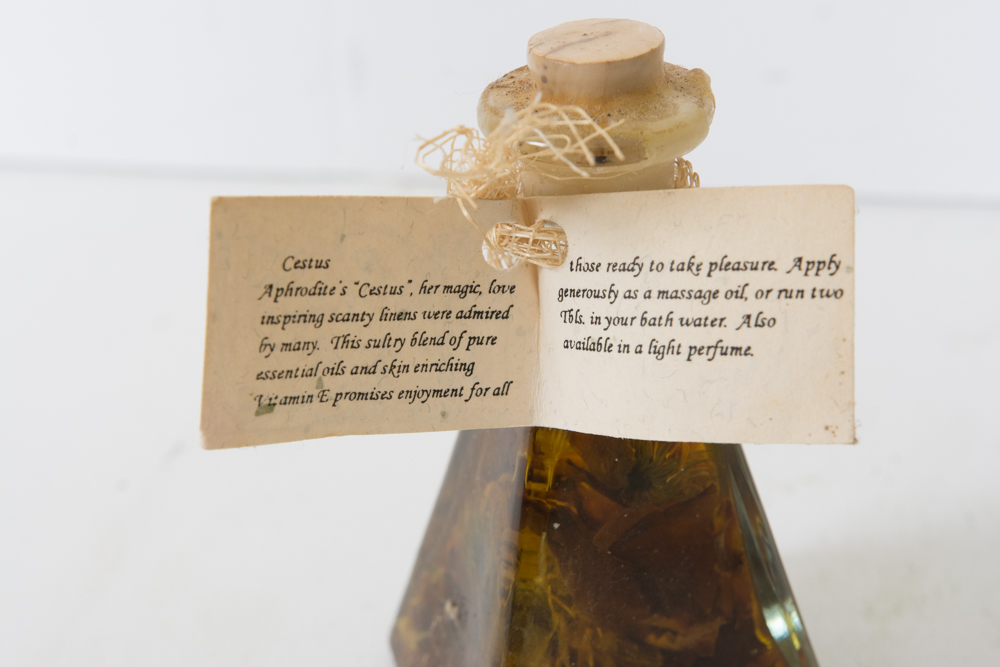 Cestus
Aphrodite's "Cestus", her magic, love
inspiring scanty linens were admired
by many. This sultry blend of pure
essential oils and skin enriching
Vitamin E promises enjoyment for all
those ready to take pleasure. Apply
generously as a massage oil, or run two
Tbls. in your bath water. Also
available in a light perfume.